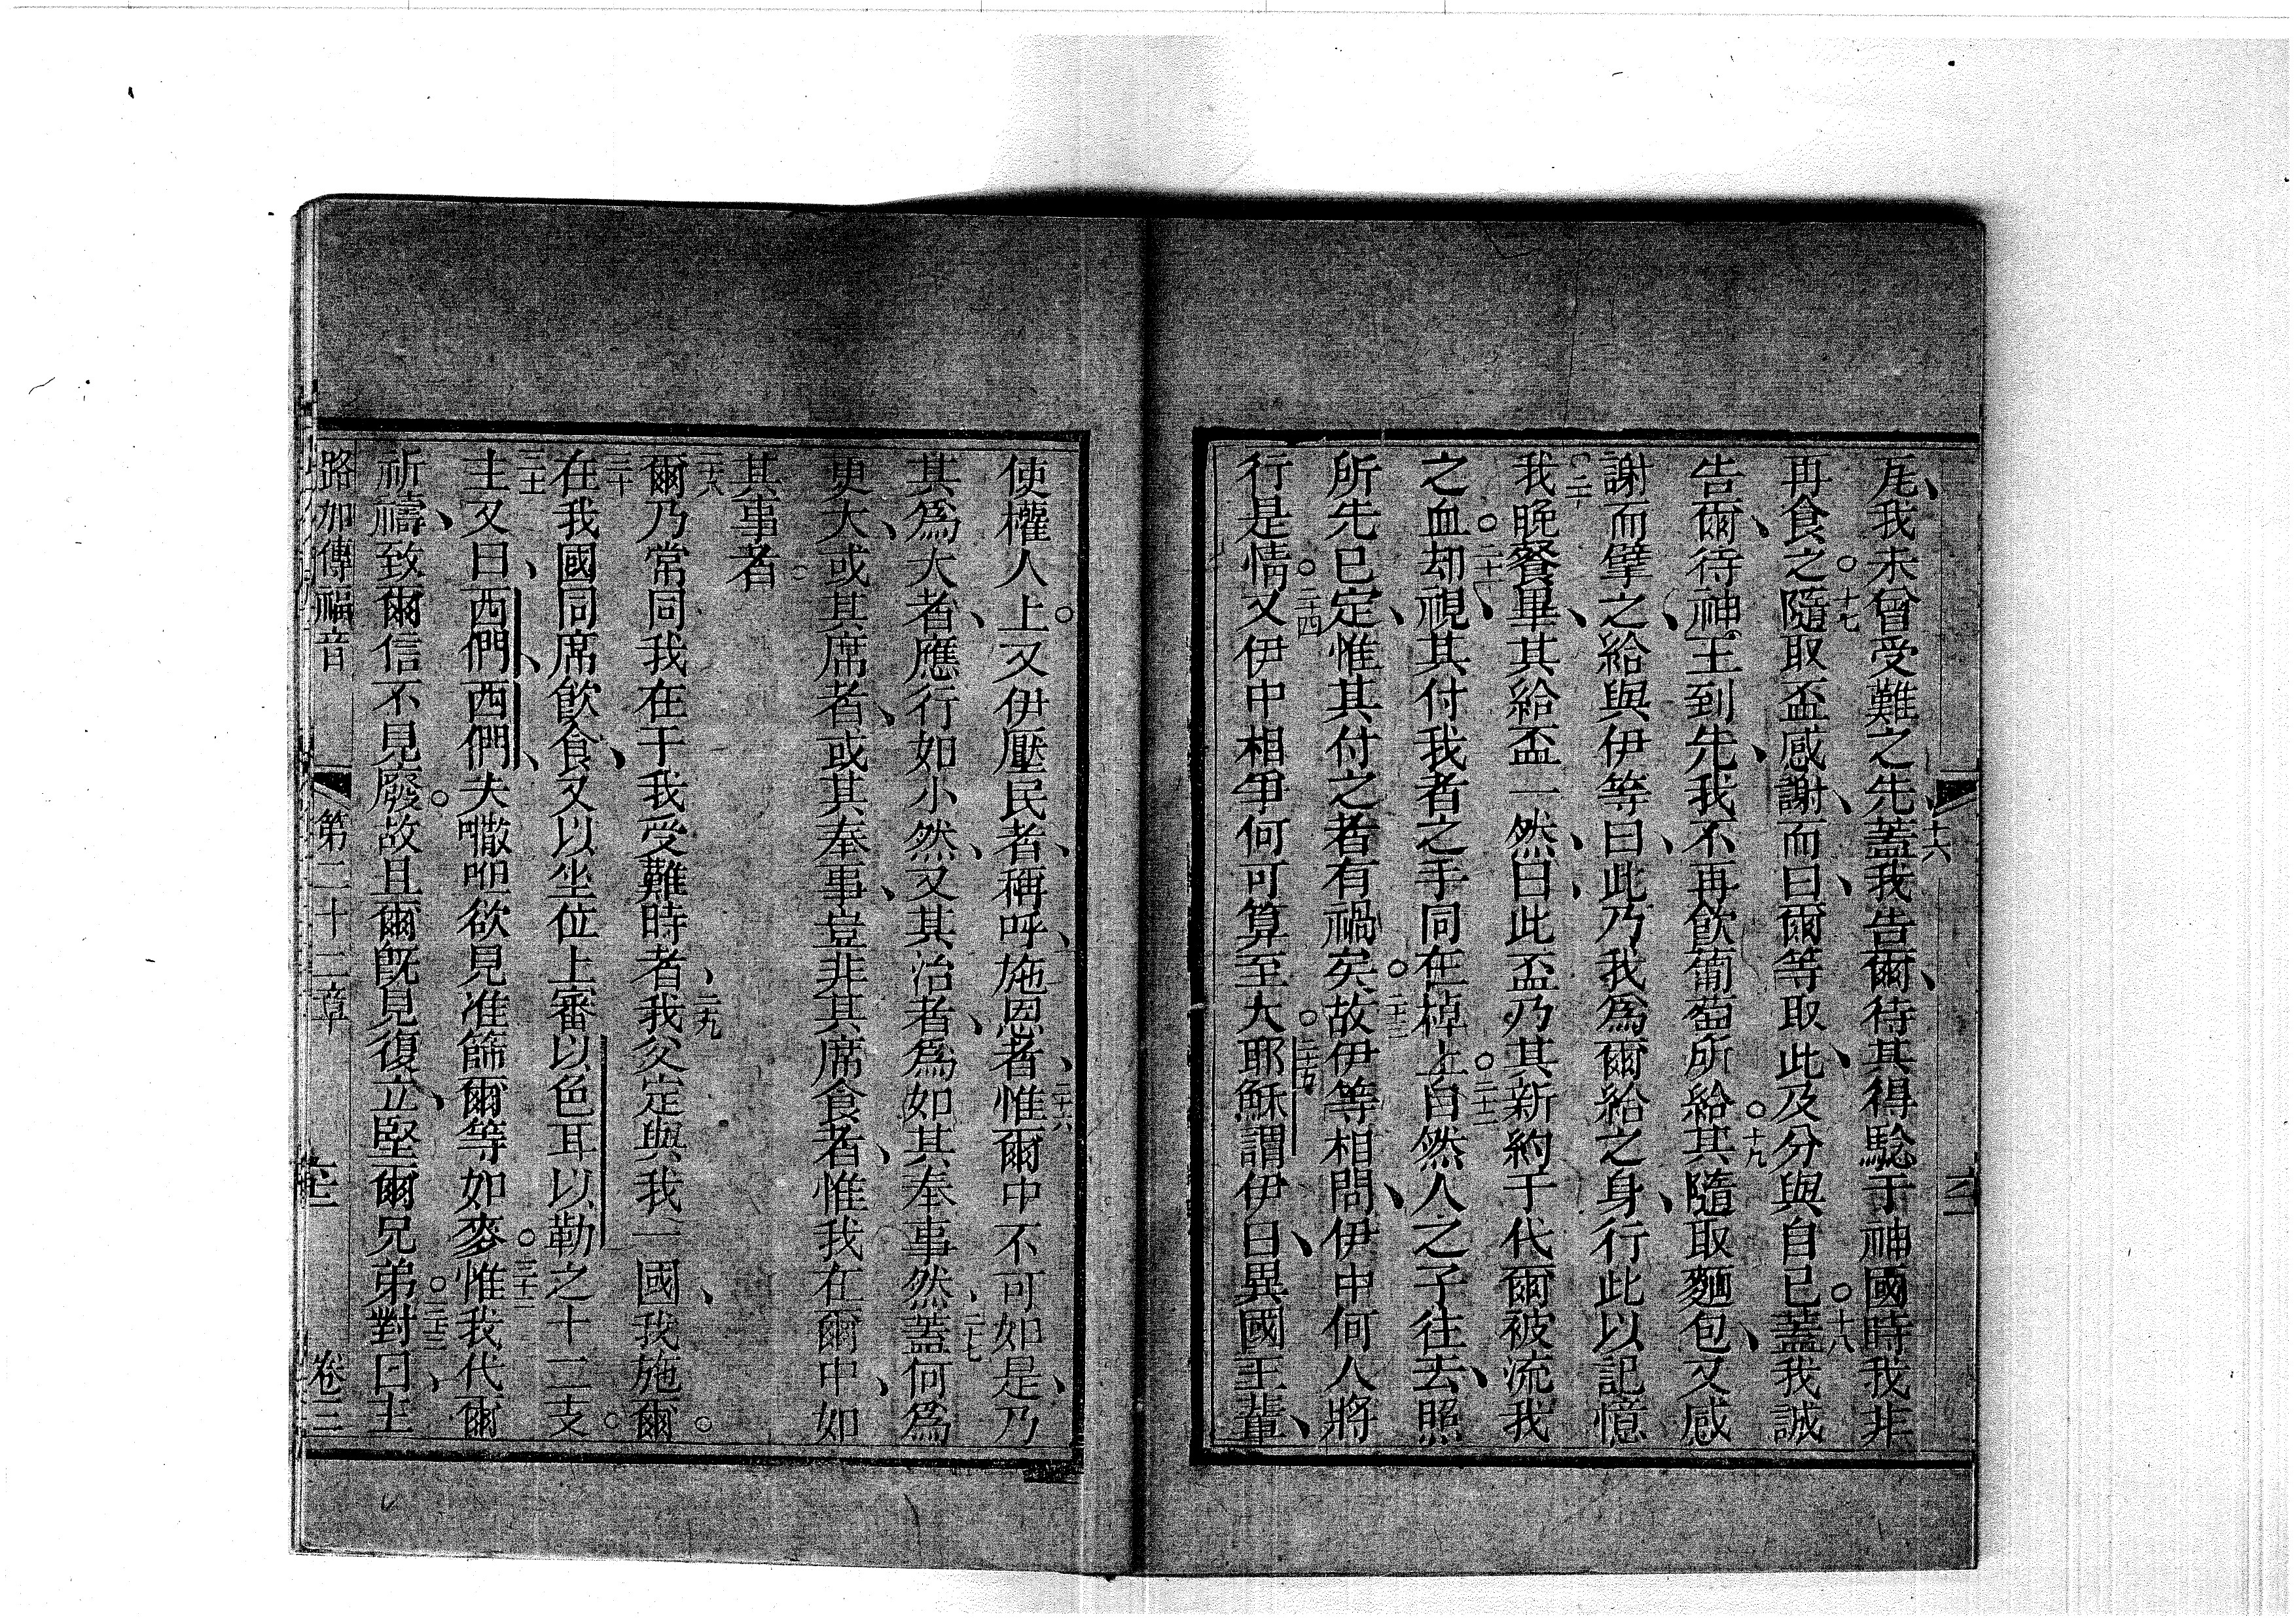 我未曾受難之先、十六蓋我告爾、待其得驗于神國時我非
再食之。十七隨取盃感謝、而曰、爾等取此、及分與自已。十八蓋我誠
告爾、待神王到先、我不再飲葡萄所給其。十九隨取麵包、又感
謝而擘之、給與伊等、曰、此乃我為爾給之身、行此以記憶
我。二十晚餐畢、其給盃一然、曰、此盃乃其新約于代爾被流我
之血。二十一却視、其付我者之手同在棹上。二十二自然人之子往去、照
所先已定、惟其付之者有禍矣。二十三故伊等相問、伊中何人將
行是情。二十四又伊中相爭何可算至大。二十五耶穌謂伊曰、異國王輩、
使權人上。又伊壓民者、稱呼、施恩者、二十六惟爾中不可如是、乃
其為大者、應行如小然、又其治者、為如其奉事然、二十七蓋何為
更大、或其席者、或其奉事、豈非其席食者、惟我在爾中、如
其事者。
二十八爾乃常同我在于我受難時者、二九我父定與我一國、我施爾。
三十在我國同席飲食、又以坐位上審以色耳以勒之十二支。
三十一主又曰、西們、西們、夫㘔呾欲見准篩爾等如麥。三十二惟我代爾
祈禱、致爾信不見廢。故且爾既見復立、堅爾兄弟。三十三對曰、主
路加傳福音 第二十二章 卷三